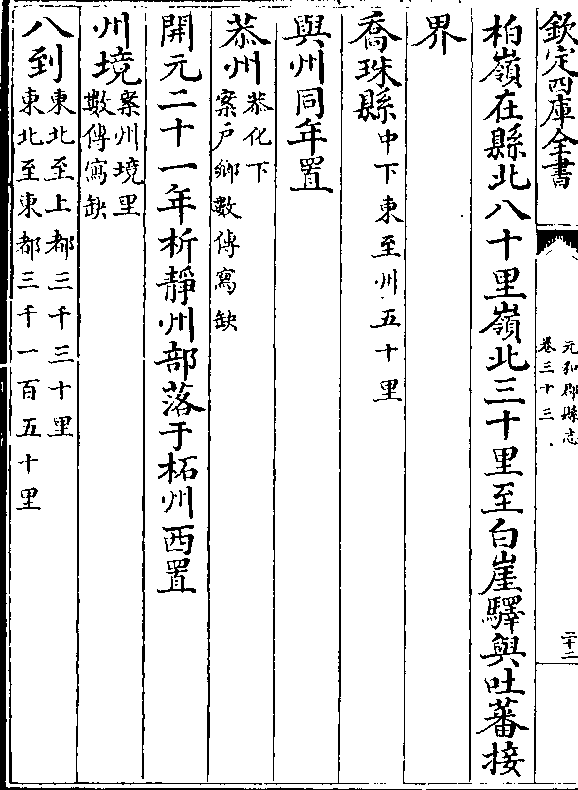 欽定四庫全書
元和郡縣志
卷三十三
二十二
柏嶺在縣北八十里嶺北三十里至白崖驛與吐蕃接
界
喬珠縣中下東至州五十里
與州同年置
恭州恭化下
案戶鄉數傳寫缺
開元二十一年析靜州部落于柘州西置
州境案州境里
數傳寫缺
八到東北至上都三千三十里
東北至東都三千一百五十里